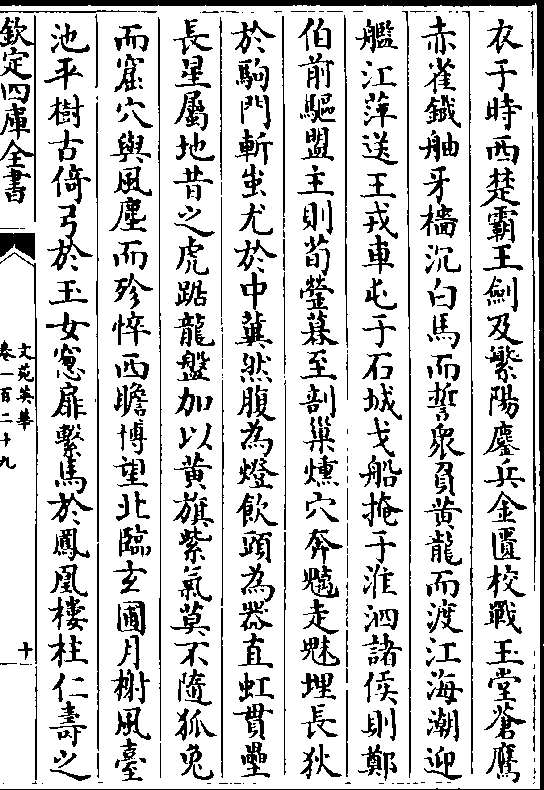 衣于時西楚霸王劍及繁陽鏖兵金匱校戰玉堂蒼鷹
赤雀鐵舳牙檣沉白馬而誓衆負黄龍而渡江海潮迎
艦江萍送王戎車屯于石城戈船掩于淮泗諸侯則鄭
伯前驅盟主則荀罃暮至剖巢燻穴奔魑走魅埋長狄
於駒門斬蚩尤於中冀然腹為燈飲頭為器直虹貫壘
長星屬地昔之虎踞龍盤加以黄旗紫氣莫不隨狐兔
而窟穴與風塵而殄悴西瞻博望北臨玄圃月榭風臺
池平樹古倚弓於玉女窓扉繫馬於鳳凰樓柱仁壽之
欽定四庫全書
文苑英華
卷一百二十九
十